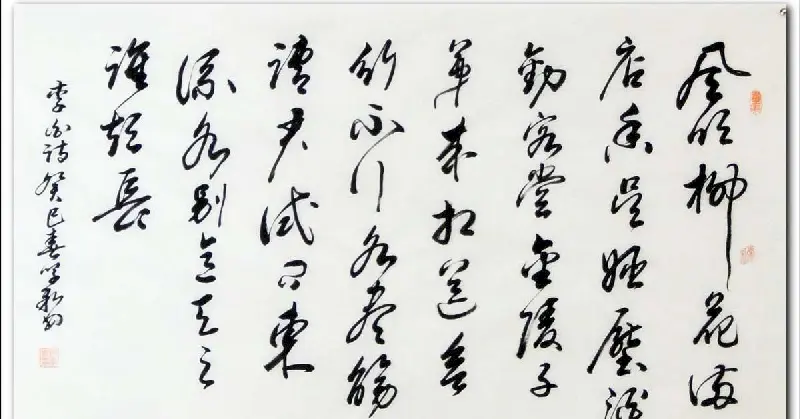 風吹柳花滿
店香吳姬壓酒
勸客嘗金陵子
弟來相送欲
行不行各盡觴
請君試問東
流水别意与之
誰短長
李白詩癸巳春